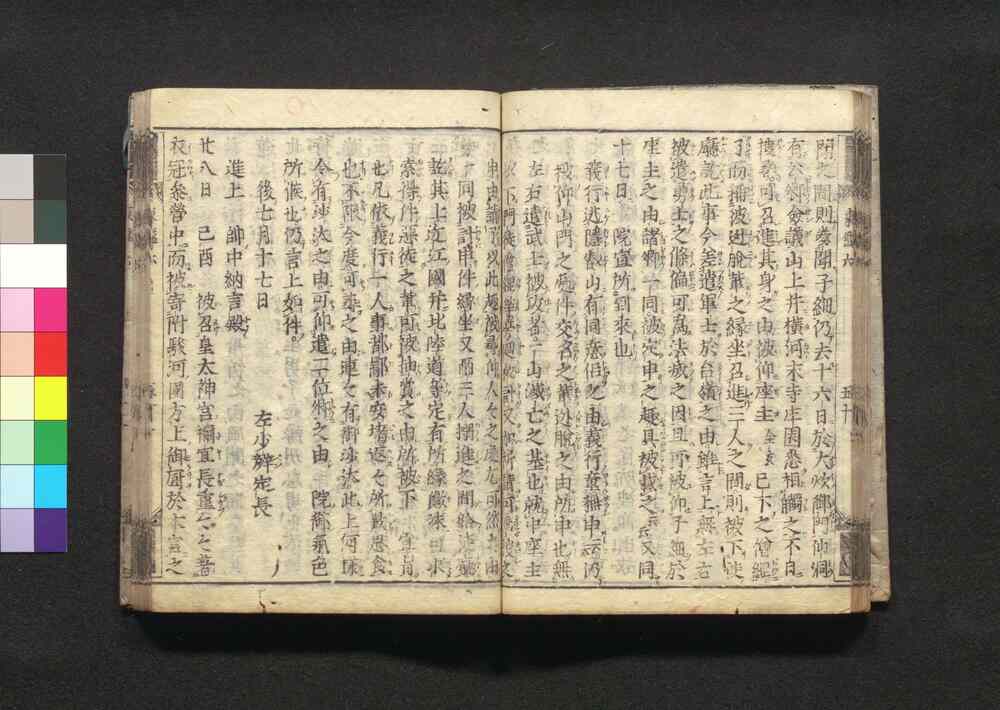 門之間則為聞子細仍去十六日於大炊御門仙洞
有公卿僉議山上并横河末寺庄園悉相觸之不日
捜尋可召進其身之由被仰座主全玄已下之僧綱
了而搦彼逃脱輩之縁坐召進三人之間則被下使
廳就此事今差遣軍士於台嶺之由雖言上無左右
被遣勇士之條偏可為法滅之因且可被仰子細於
座主之由諸卿一同被定申之趣具被載之云々又同
十七日 院宣所到来也
義行逃隠叡山有同意侶之由義行童無申云仍
被仰山門之處件交名之輩逃脱之由所申也無
左右遣武士被攻者一山滅亡之基也就中座主
以下門徒僧綱等
由議了以此趣被尋仰人々之處尤可然之由
一同被計申件縁坐又両三人搦進之間給使廳
訖其上近江國并北陸道等定有所縁歟殊可求
索得件悪徒之輩可被抽賞之由所被下 宣旨
也凡依義行一人事都鄙未安堵返々所歎思食
也不限今度可求之由連々有御沙汰此上何様
令有沙汰之由可仰遣二位卿之由 院御氣色
所候也仍言上如件
後七月十七日
左少辨定長
進上 帥中納言殿
廿八日 己酉 被召皇太神宮禰宜長重云々着
衣冠参營中而被寄附駿河國方上御厨於本宮之